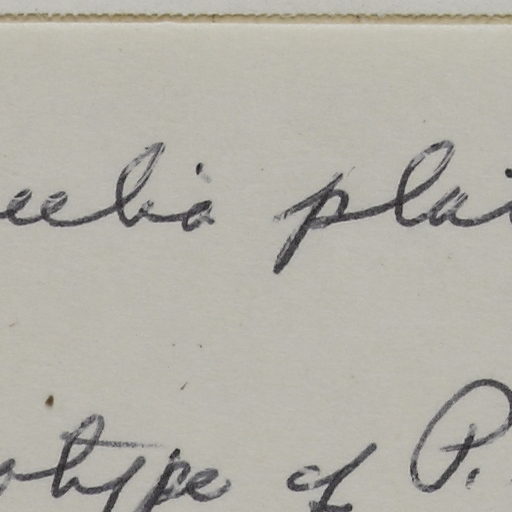 eelia plai
otype of P.